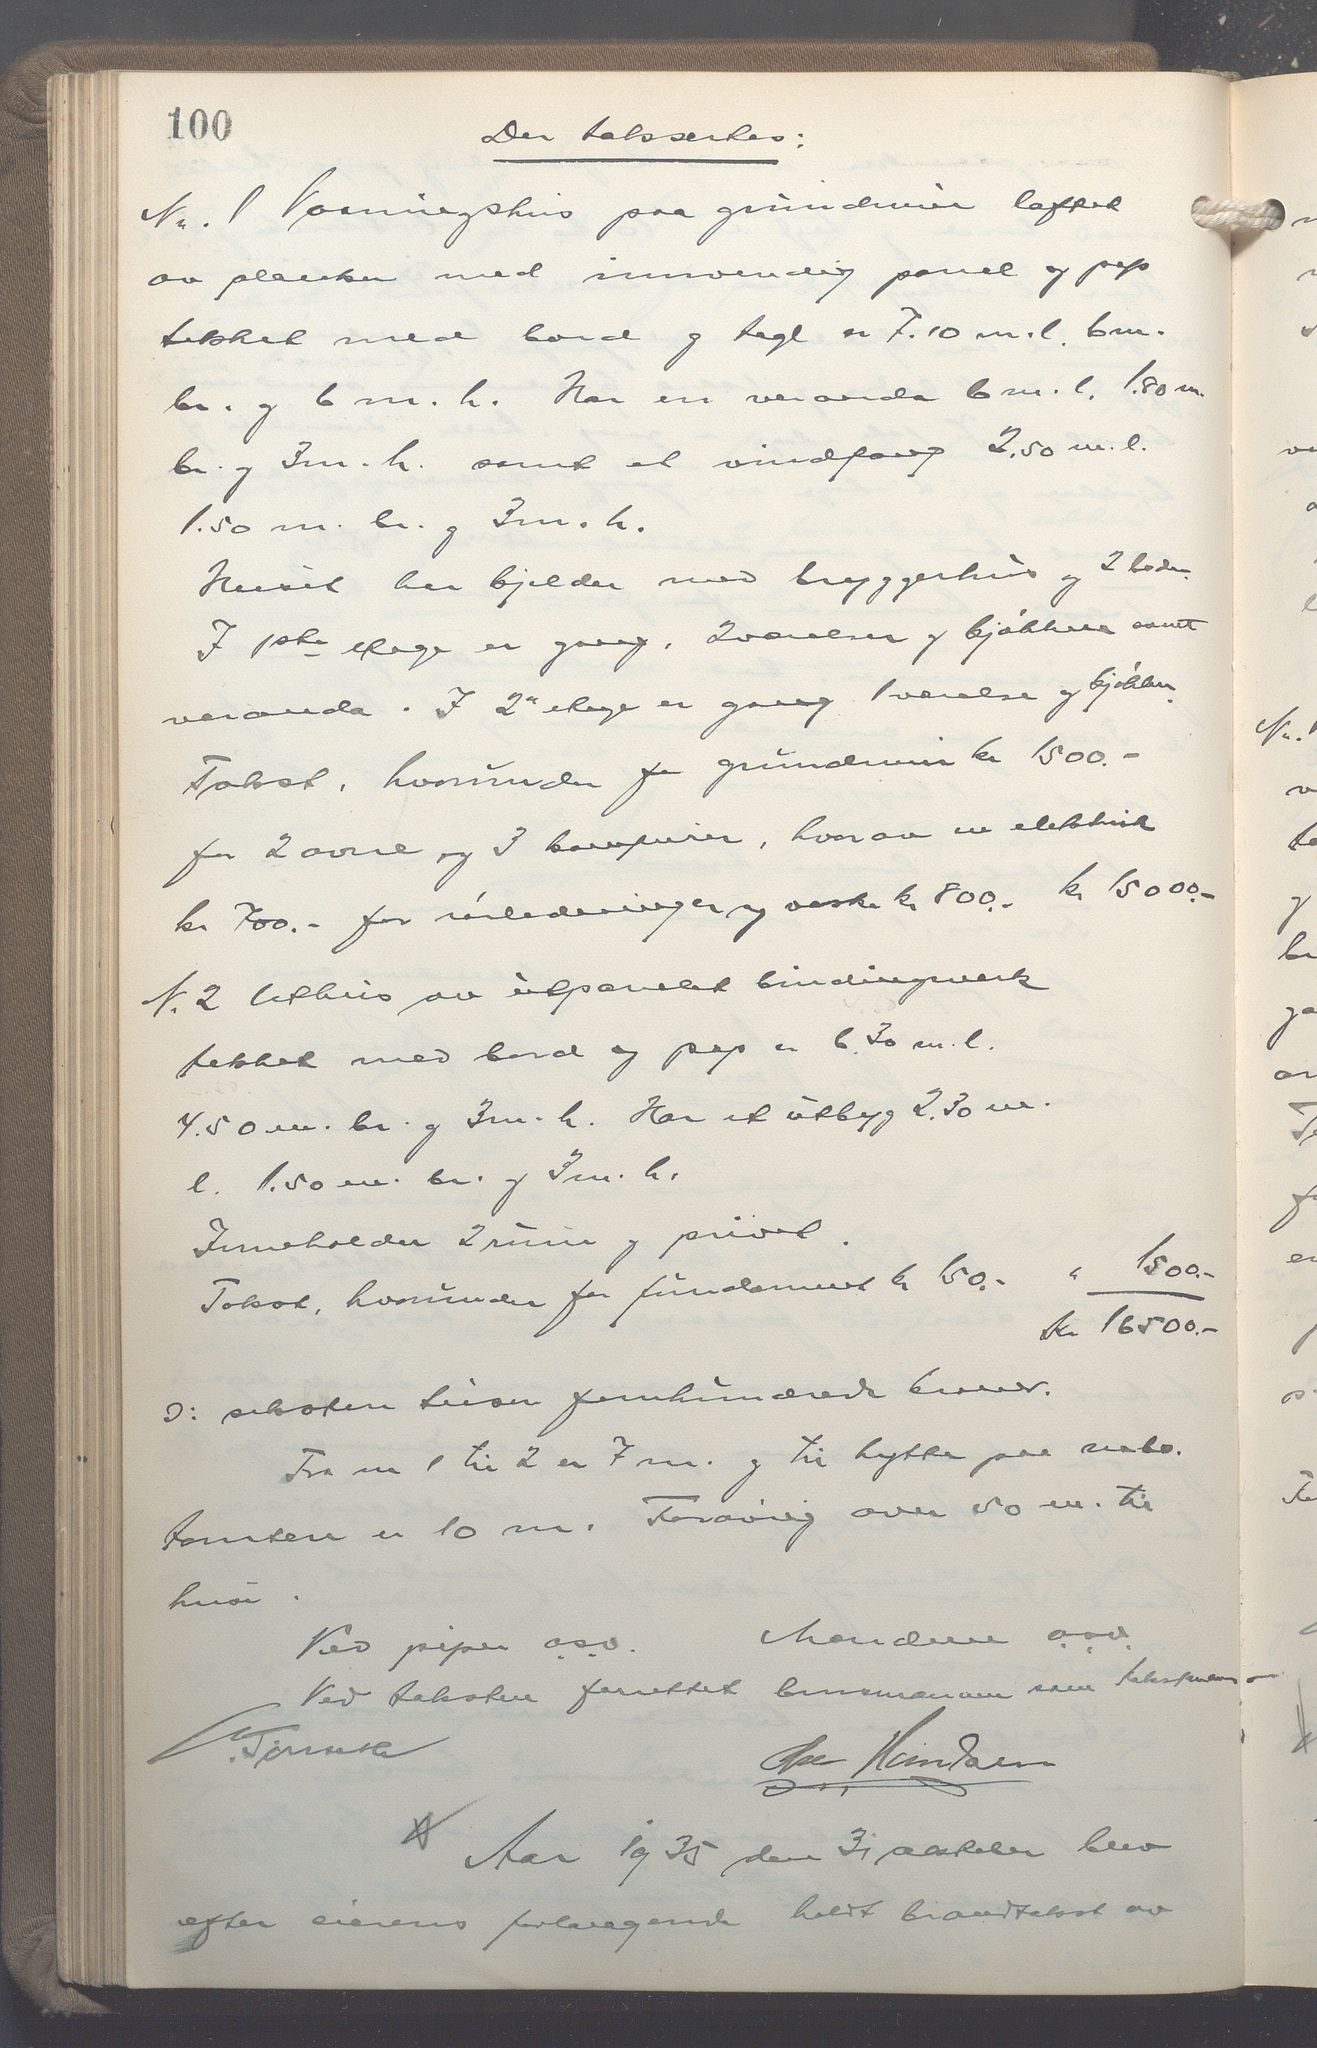 100
Der takseres:
Nr. 1 Vaaningshus paa grundmur laftet
av planker med innvendig panel og pap
tekket med bord og tegl er 7.10 m. l. 6 m.
br. og 6 m. h. Har en veranda 6 m. l. 1.80 m.
br. og 3 m. h. samt et vindfang 2.50 m. l.
1.50 m. br. og 3 m. h.
Huset har kjelder med bryggerhus og 2 boder.
I 1ste etage er gang, 2 værelser og kjøkken samt
veranda. I 2n etage er gang 1 værelse og kjøkken.
Takst, hvorunder for grundmur kr 1500.-
for 2 ovne og 3 komfurer, hvorav en elektrisk
kr 700.- for rørledninger og vaske kr 800.- kr 15000.-
N. 2 Uthus av utpanelet bindingverk
tekket med bord og pap er 6.30 m. l.
4.50 m. br. og 3 m. h. Har et utbyg 2.30 m.
l. 1.50 m. br. og 3 m. h.
Inneholder 2 rum og privet.
Takst, hvorunder for fundament kr 150.- " 1500.-
kr 16500.-
ɔ: seksten tusen femhundrede kroner.
Fra nr 1 til 2 er 7 m. og til hytte paa nabo-
tomten er 10 m. Forøvrig over 50 m. til
hus.
Ved piper o.s.v. Mendene o.s.v.
Ved taksten forrettet lensmannen som takstmann
Aar 1935 den 31 oktober blev
efter eierens forlangende holdt brandtakst av